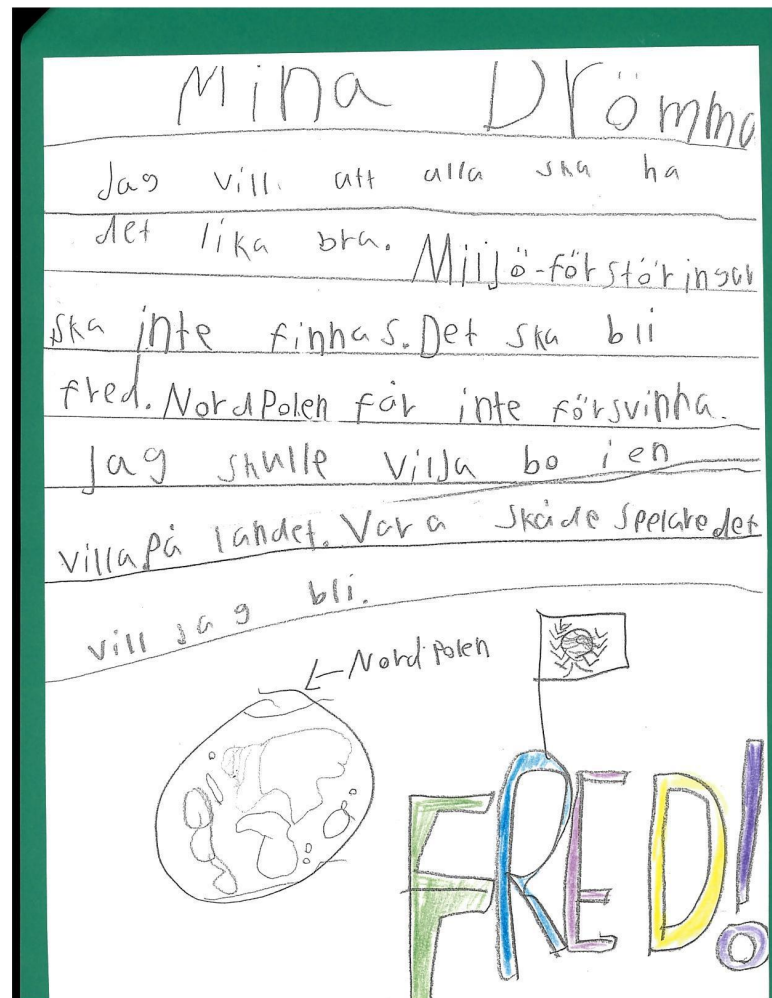 Mina Drömma
Jag vill att alla ska ha
det lika bra. Miijö-förstöringar
ska inte finnas. Det ska bli
fred. NordPolen får inte försvinna.
Jag skulle vilja bo i en
villa på landet. Vara skådespelare det
vill jag bli.
Nordpolen
FRED!